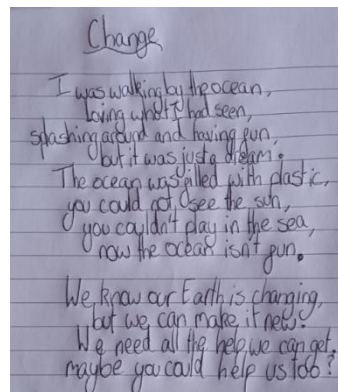 Change
I was walking by the ocean,
loving what I had seen,
splashing around and having fun,
but it was just a dream.
The ocean was filled with plastic,
you could not see the sun,
you couldn't play in the sea,
now the ocean isn't fun.
We know our Earth is changing,
but we can make it new!
We need all the help we can get,
maybe you could help us too?